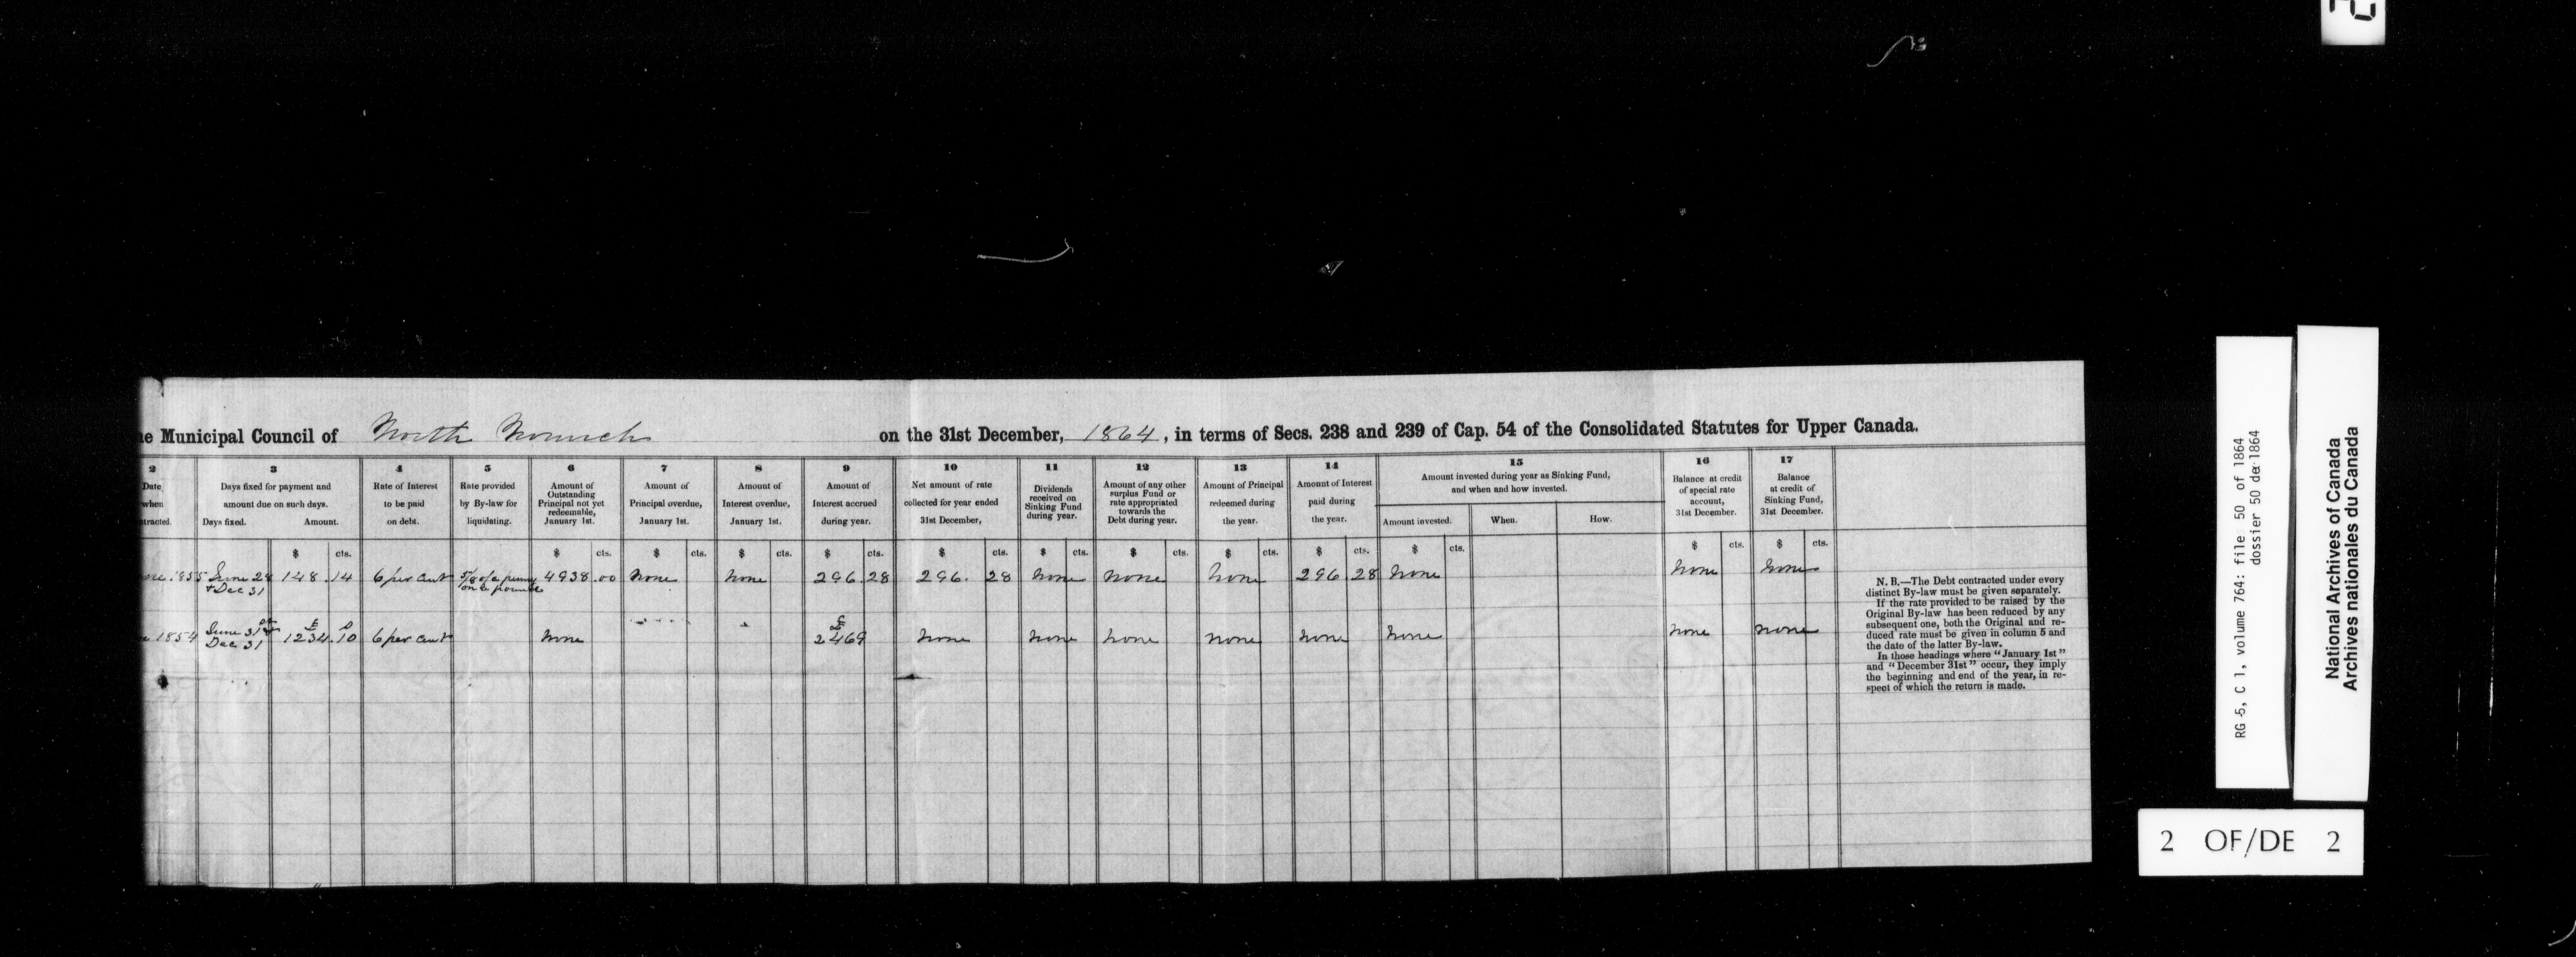 he Municipal Council of North Norwich on the 31st December, 1864, in terms of Secs. 238 and 239 of Cap. 54 of the Consolidated Statutes for Upper Canada.
2 3 4 5 6 7 8 9 10 11 12 13 14 15 16 17
Date, when ntracted.
Days fixed for payment and amount due on such days.
Days fixed. Amount.
Rate of Interest to be paid on debt.
Rate provided by By-law for liquidating.
Amount of Outstanding Principal not yet redeemable, January 1st.
Amount of Principal overdue, January 1st.
Amount of Interest overdue, January 1st.
Amount of Interest accrued during year.
Net amount of rate collected for year ended 31st December,
Dividends received on Sinking Fund during year.
Amount of any other surplus Fund or rate appropriated towards the Debt during year.
Amount of Principal redeemed during the year.
Amount of Interest paid during the year.
Amount invested during year as Sinking Fund, and when and how invested.
Amount invested. When. How.
Balance at credit of special rate account, 31st December.
Balance at credit of Sinking Fund, 31st December.
$ cts. $ cts. $ cts. $ cts. $ cts. $ cts. $ cts. $ cts. $ cts. $ cts. $ cts. $ cts. $ cts.
ne 1855 June 28 148.14 6 per cent 5/8 of a penny 4938.00 None None 296.28 296.28 None None None 296 28 None None None
& Dec 31 on a pound
£ £
e 1854 June 31 1234.10 6 per cent None 2469 None None None None None None None None
Dec 31
N. B.—The Debt contracted under every
distinct By-law must be given separately.
If the rate provided to be raised by the
Original By-law has been reduced by any
subsequent one, both the Original and re-
duced rate must be given in column 5 and
the date of the latter By-law.
In those headings where "January 1st"
and "December 31st" occur, they imply
the beginning and end of the year, in re-
spect of which the return is made.
RG 5, C 1, volume 764: file 50 of 1864
dossier 50 de 1864
National Archives of Canada
Archives nationales du Canada
2 OF/DE 2